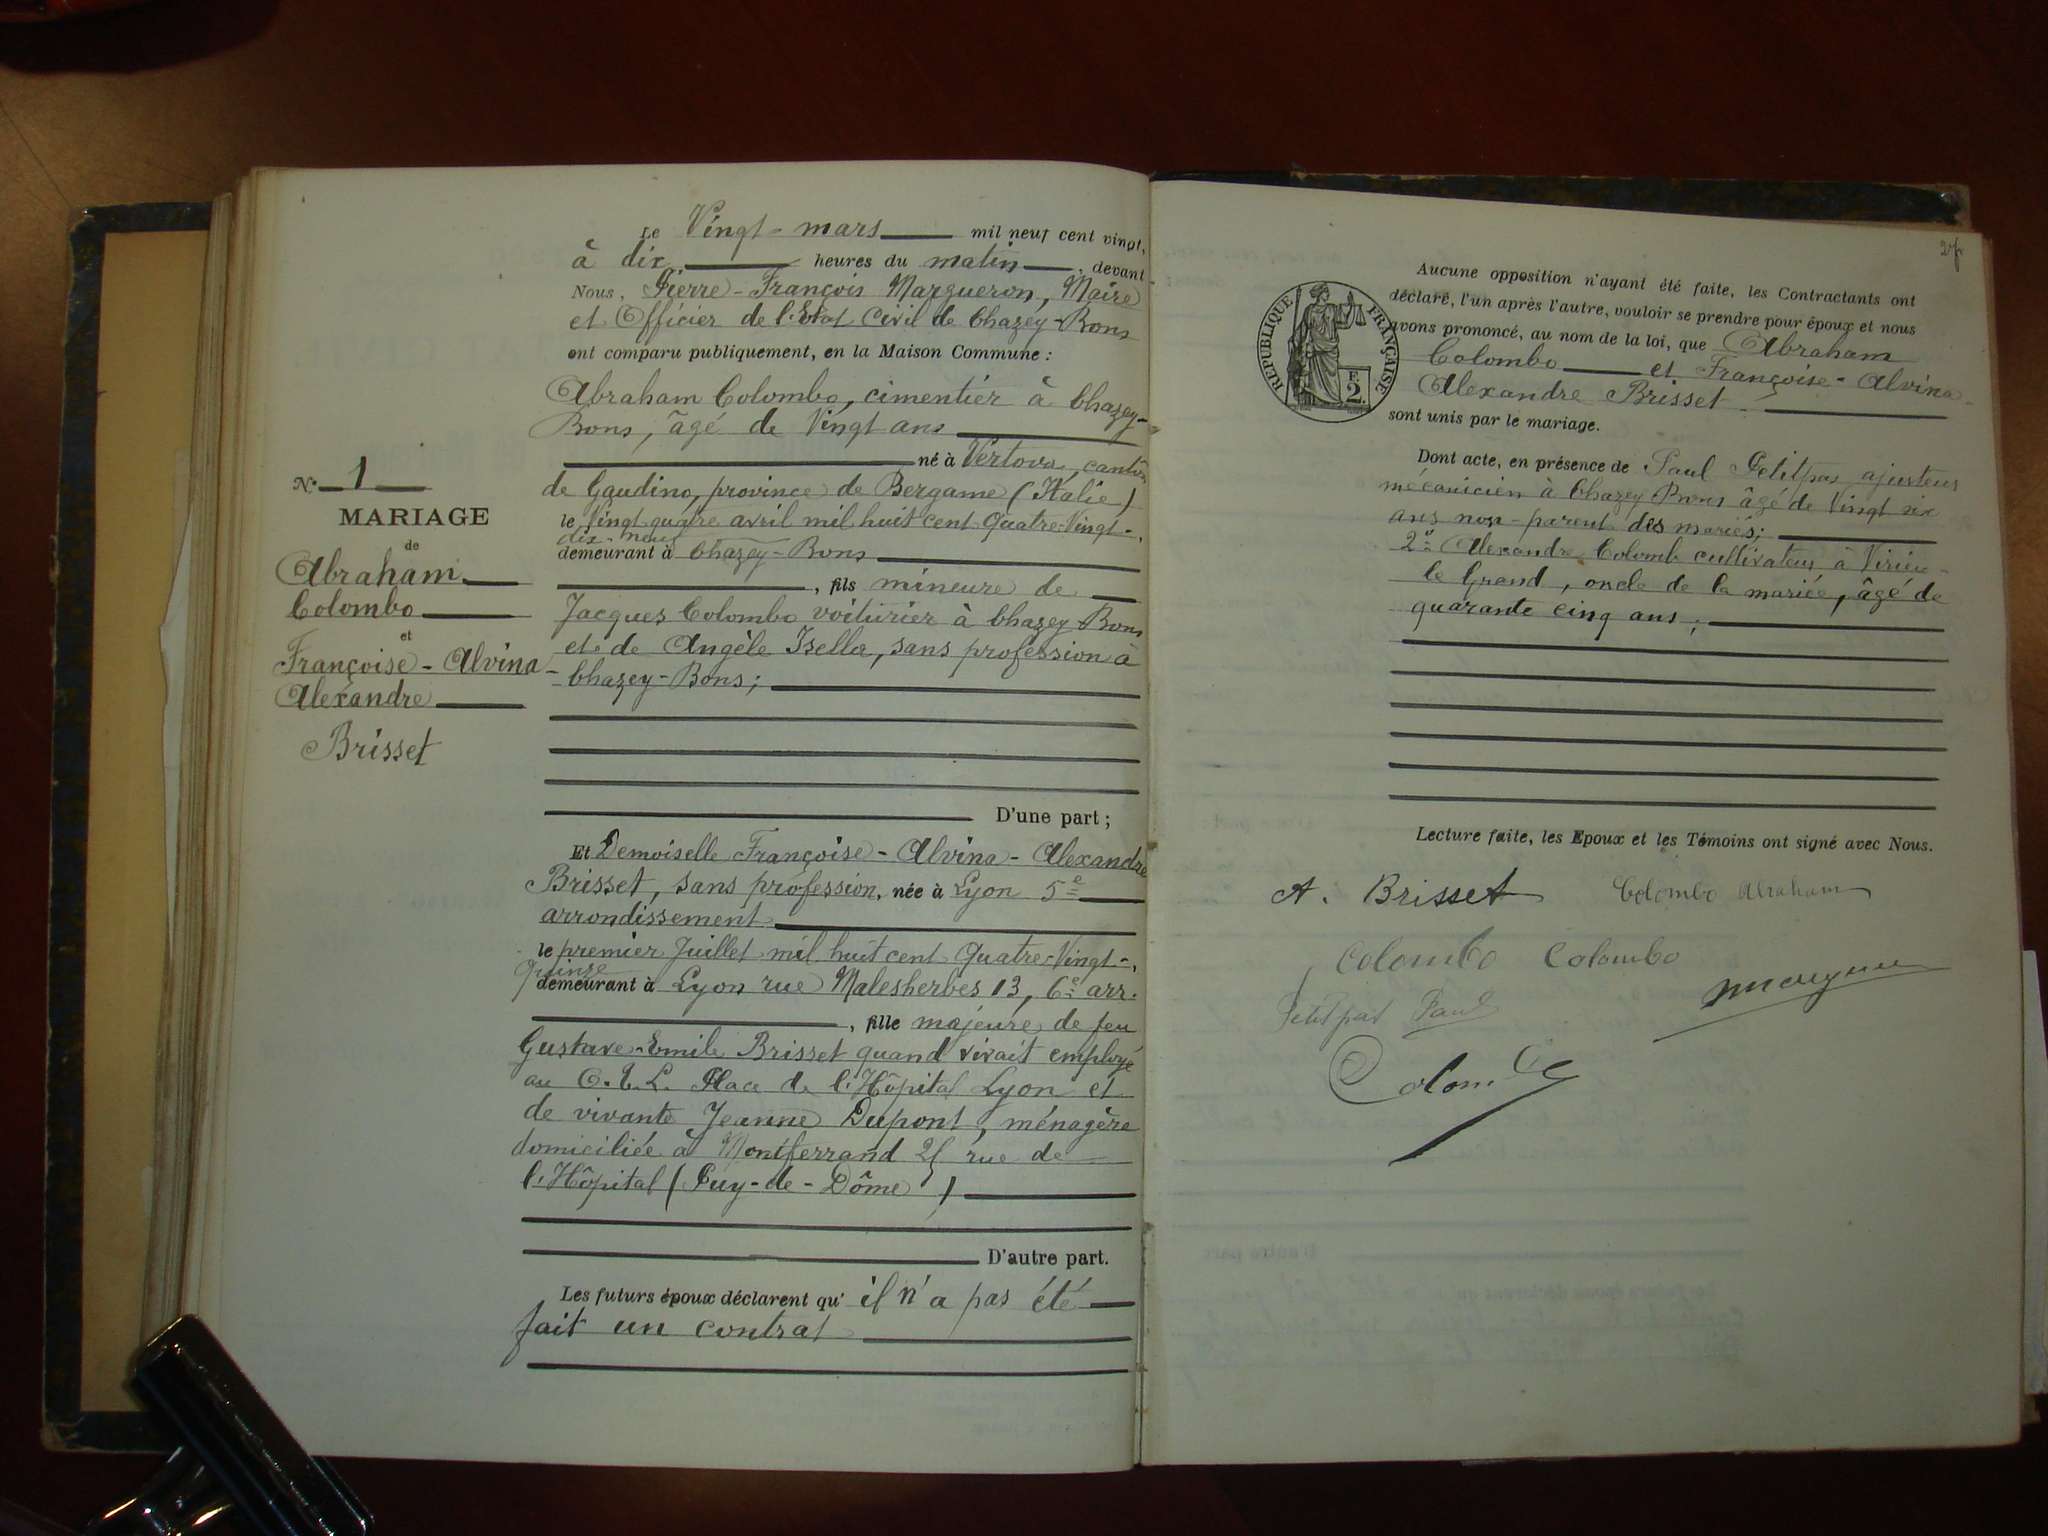 Le Vingt-mars mil neuf cent vingt,
à dix heures du matin, devant
Nous, Pierre-François Margueron, Maire
et Officier de l'Etat Civil de Chazey-Bons
ont comparu publiquement, en la Maison Commune :
Abraham Colombo, cimentier à Chazey-
Bons, âgé de Vingt ans
né à Vertova, canton
de Gaudino, province de Bergame (Italie)
le Vingt quatre avril mil huit cent Quatre-Vingt-
dix-neuf
demeurant à Chazey-Bons
, fils mineure de
Jacques Colombo voiturier à Chazey-Bons
et de Angèle Isella, sans profession à
Chazey-Bons ;
D'une part ;
N° 1
MARIAGE
de
Abraham
Colombo
et
Françoise-Alvina-
Alexandre
Brisset
Et Demoiselle Françoise-Alvina-Alexandre
Brisset, sans profession, née à Lyon 5e
arrondissement
le premier Juillet mil huit cent Quatre-Vingt-
Quinze
demeurant à Lyon rue Malesherbes 13, 6e arr.
, fille majeure de feu
Gustave-Emile Brisset quand vivait employé
au O.T.L. Place de l'Hôpital Lyon et
de vivante Jeanne Dupont, ménagère
domiciliée à Montferrand rue de
l'Hôpital (Puy-de-Dôme)
D'autre part.
Les futurs époux déclarent qu' il n'a pas été
fait un contrat
27
RÉPUBLIQUE FRANÇAISE
F.
2.
Aucune opposition n'ayant été faite, les Contractants ont
déclaré, l'un après l'autre, vouloir se prendre pour époux et nous
avons prononcé, au nom de la loi, que Abraham
Colombo et Françoise-Alvina-
Alexandre Brisset
sont unis par le mariage.
Dont acte, en présence de Paul Petitpas ajusteur
mécanicien à Chazey-Bons âgé de Vingt six
ans non-parent des mariés ;
2e Alexandre Colomb cultivateur à Virieu-
le Grand, oncle de la mariée, âgé de
quarante cinq ans ;
Lecture faite, les Epoux et les Témoins ont signé avec Nous.
A. Brisset Colombo Abraham
Colombo Colombo
Petitpas Paul
Colomb